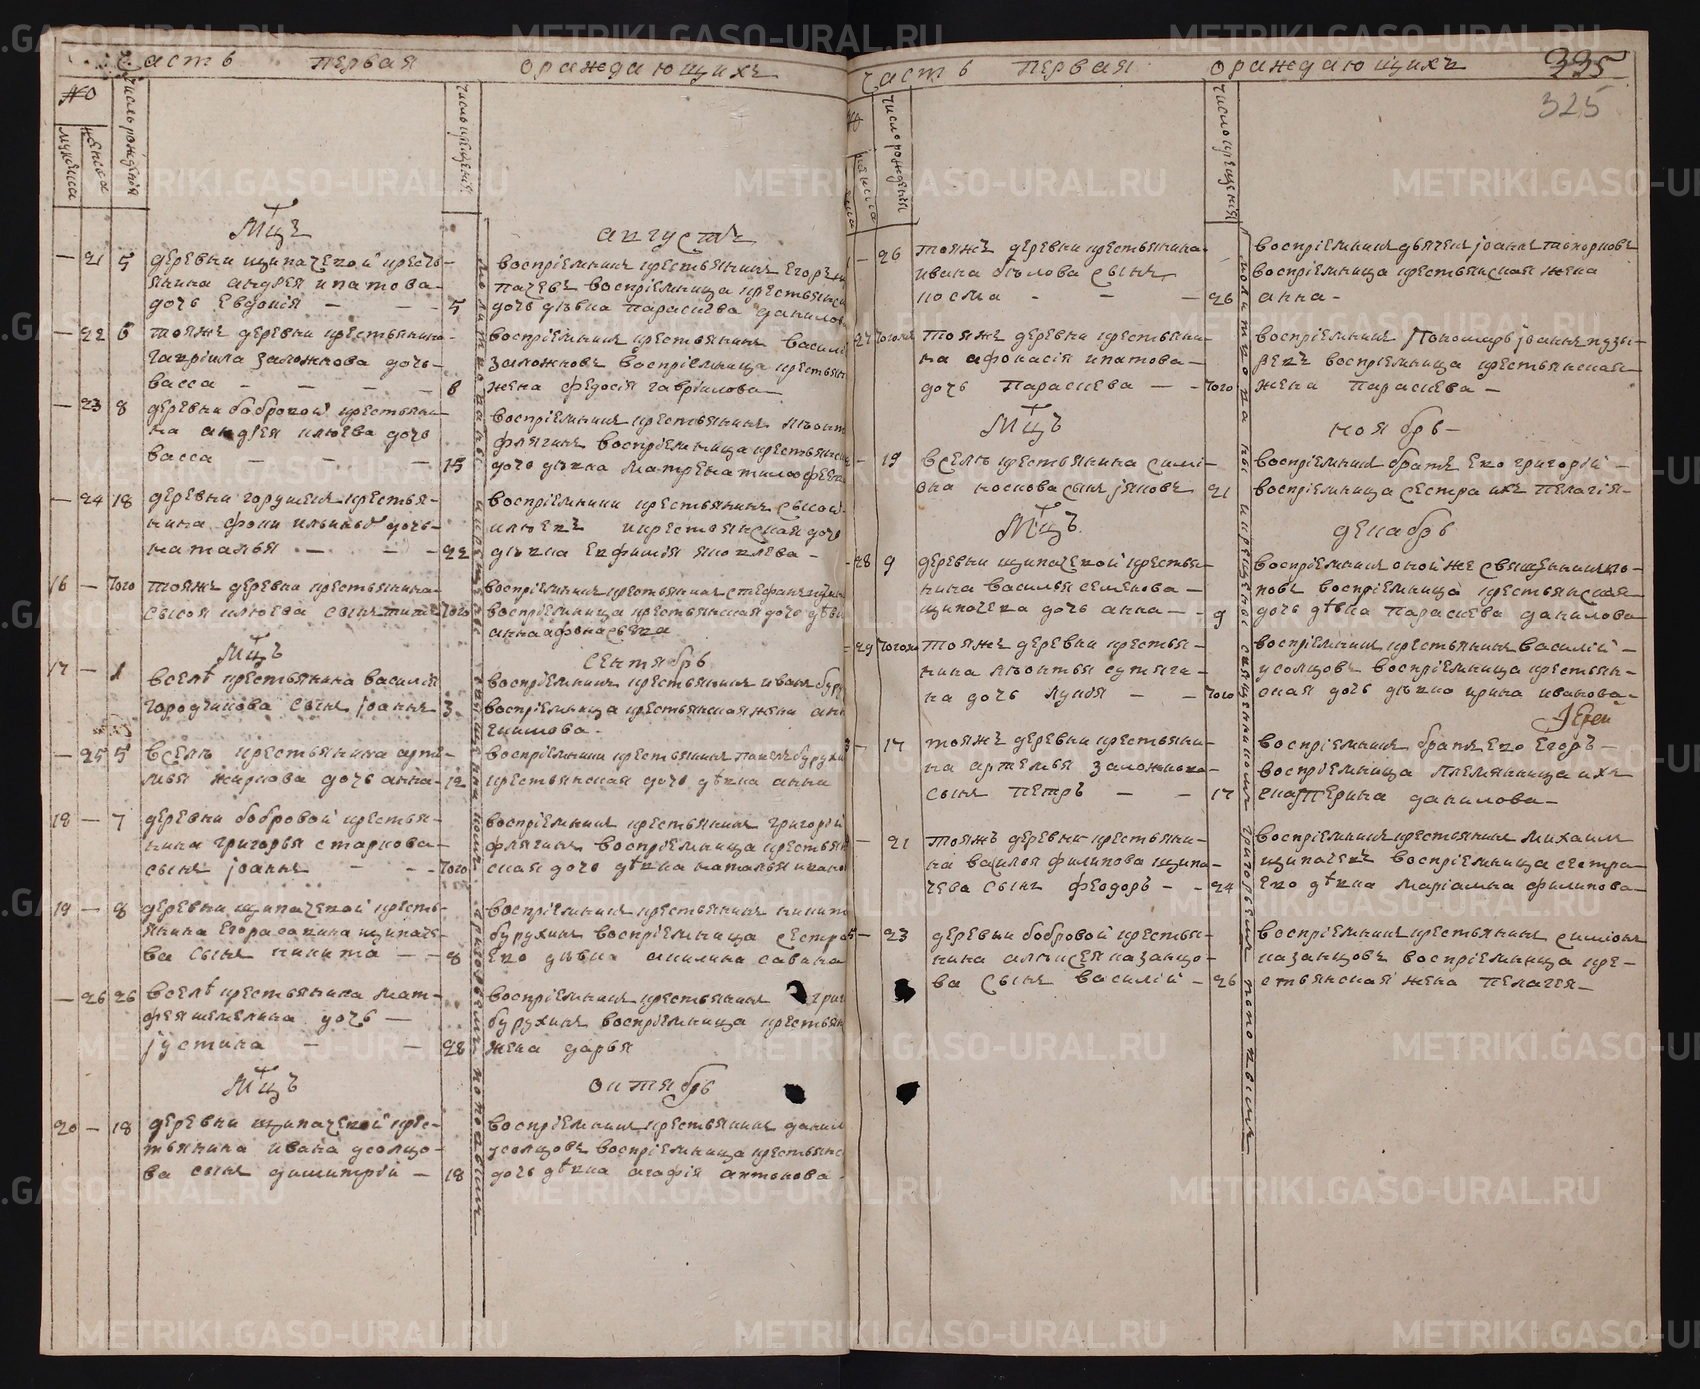 Часть первая ораждающихъ
№
мужеска
женска
число рождения
число крещения
Мцъ августъ
— 21 5 деревни щипачевой кресть-
янина андрея ипатова-
дочь Евдокія — — 5
восприемникъ крестьянинъ Егоръ
пачевъ восприемница крестьянск
дочь девка парасцева данилов
— 22 6 тояжъ деревни крестьянина-
гавріила заложнова дочь-
васса — — — 6
восприемникъ крестьянинъ василі
заложновъ восприемница крестьян
жена федосія гавріилова
— 23 8 деревни бобровой крестьяни-
на андрея илюева дочь
васса — — — 15
восприемникъ крестьянинъ леонт
флягинъ восприемница крестьянск
дочь девка матрена тимофеева
— 24 18 деревни горушекъ крестья-
нина фоки ильиныхъ дочь-
наталья — — — 22
восприемники крестьянинъ сысой
илюевъ и крестьянская дочь
девка Евфимія яковлева-
16 — того тояжъ деревни крестьянина
сысоя илюева сынъ титъ того
восприемникъ крестьянинъ стефанъ
восприемница крестьянская дочь девк
анна афонасьева
Мцъ сентябрь
17 — 1 в селе крестьянина василія
городчикова сынъ іоаннъ 3
восприемникъ крестьянинъ иванъ бур
восприемница крестьянская жена анн
екимова-
— 25 5 в селе крестьянина арте-
мья жаркова дочь анна- 12
восприемники крестьянинъ павелъ бурухи
крестьянская дочь девка анна
18 — 7 деревни бобровой крестья-
нина григорья старкова-
сынъ іоаннъ — — того
восприемникъ крестьянинъ григорій
флягинъ восприемница крестьян
ская дочь девка наталья ивано
19 — 8 деревни щипачевой кресть-
янина Егора савина щипаче-
ва сынъ никита — — 8
восприемникъ крестьянинъ никит
бурухинъ восприемница сестра
его девка акилина савина
— 26 26 в селе крестьянина мат-
фея шемелина дочь —
іустина — — 28
восприемникъ крестьянинъ григ
бурухинъ восприемница крестьян
жена дарья
Мцъ октябрь
20 — 18 деревни щипачевой кре-
стьянина ивана усолцо-
ва сынъ димитрій — 18
восприемникъ крестьянинъ данил
усолцовъ восприемница крестьянс
дочь девка агафія антонова-
Часть первая ораждающихъ
335
325
число рождения
число крещения
— 26 тояжъ деревни крестьянина
ивана белова сынъ
косма — — — 26
восприемникъ дьячекъ іоаннъ топорковъ
восприемница крестьянская жена
анна-
27 тогож тояжъ деревни крестьяни-
на афонасія ипатова-
дочь парасцева — — того
восприемникъ пономарь іоаннъ пузы-
ревъ восприемница крестьянская
жена парасцева —
Мцъ ноябрь-
— 19 в селе крестьянина симі-
она носкова сынъ іяковъ 21
восприемникъ братъ его григорій —
восприемница сестра ихъ пелагія-
Мцъ декабрь
28 9 деревни щипачевой крестья-
нина василья семенова —
щипачева дочь анна — — 9
восприемникъ оной же священникъ по-
повъ восприемница крестьянская-
дочь девка парасцева данилова
29 тогож тояжъ деревни крестья-
нина леонтья сутяги-
на дочь лукія — — того
восприемникъ крестьянинъ василій —
усолцовъ восприемница крестьян-
ская дочь девка ирина иванова-
Іерей
— 17 тояжъ деревни крестьяни-
на артемья заложнова-
сынъ петръ — — 17
восприемникъ братъ его егоръ-
восприемница племянница ихъ
екатерина данилова-
— 21 тояжъ деревни крестьяни-
на василья филипова щипа-
чева сынъ феодоръ — — 24
восприемникъ крестьянинъ михаилъ
щипачевъ восприемница сестра-
его девка маріамна филипова-
— 23 деревни бобровой крестья-
нина алексея казанцо-
ва сынъ василій — 26
восприемникъ крестьянинъ симіонъ
казанцовъ восприемница кре-
стьянская жена пелагея-